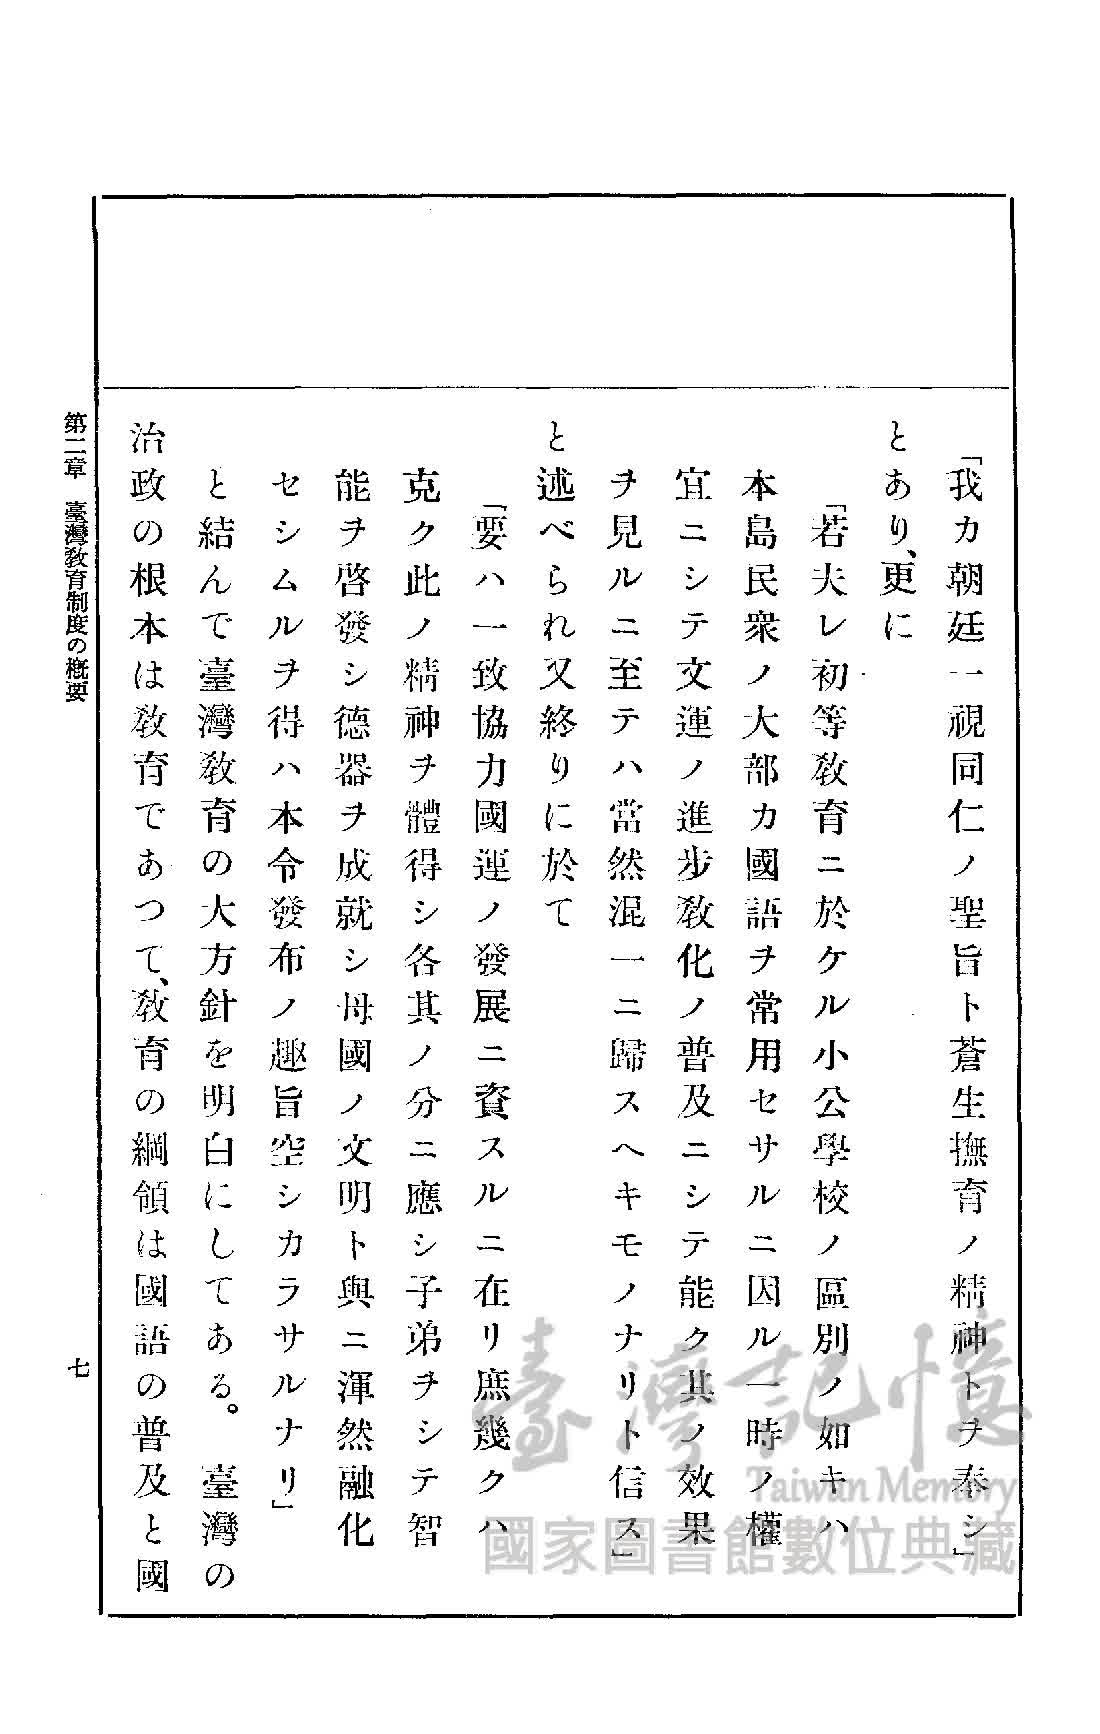 「我カ朝廷一視同仁ノ聖旨ト蒼生撫育ノ精神トヲ奉シ」
とあり、更に
「若夫レ初等教育ニ於ケル小公學校ノ區別ノ如キハ
本島民衆ノ大部カ國語ヲ常用セサルニ因ル一時ノ權
宜ニシテ文運ノ進步教化ノ普及ニシテ能ク其ノ效果
ヲ見ルニ至テハ當然混一ニ歸スヘキモノナリト信ス」
と述べられ又終りに於て
「要ハ一致協力國運ノ發展ニ資スルニ在リ庶幾クハ
克ク此ノ精神ヲ體得シ各其ノ分ニ應シ子弟ヲシテ智
能ヲ啓發シ德器ヲ成就シ母國ノ文明ト與ニ渾然融化
セシムルヲ得ハ本令發布ノ趣旨空シカラサルナリ」
と結んで臺灣教育の大方針を明白にしてある。臺灣の
治政の根本は教育であつて、教育の綱領は國語の普及と國
第二章 臺灣教育制度の概要
七
臺灣記憶
Taiwan Memory
國家圖書館數位典藏